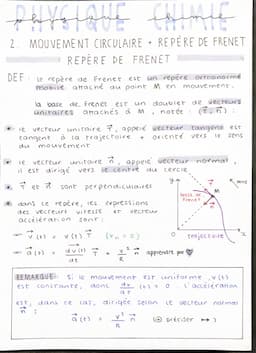 PHYSIQUE CHIMIE
physique chimie
2. MOUVEMENT CIRCULAIRE + REPÈRE DE FRENET
REPÈRE DE FRENET
DEF : le repère de Frenet est un repère orthonormé
mobile attaché au point M en mouvement.
la base de Frenet est un doublet de vecteurs
unitaires attachés à M, notée (τ, n) :
le vecteur unitaire τ, appelé vecteur tangent est
tangent à la trajectoire + orienté vers le sens
du mouvement
le vecteur unitaire n, appelé vecteur normal,
il est dirigé vers le centre du cercle
τ et n sont perpendiculaires
dans ce repère, les expressions
des vecteurs vitesse et vecteur
accélération sont :
base de
Frenet
M
trajectoire
→ v(t) = v(t) τ (vn = 0)
→ a(t) = dv(t)/dt τ + v²/R n apprendre par ♥
REMARQUE : Si le mouvement est uniforme, v(t)
est constante, donc dv/dt (t) = 0. l'accélération
est, dans ce cas, dirigée selon le vecteur normal
n :
a(t) = v²/R n préciser ↦